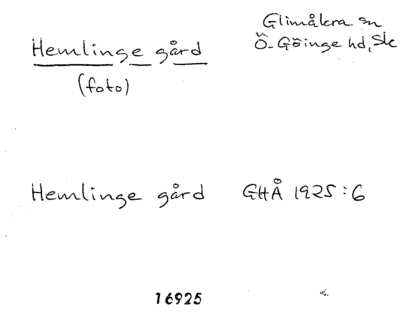 Glimåkra sn
Hemlinge gård
Ö-Göinge hd, Sk
(foto)
Hemlinge gård GHÅ 1925:6
16925